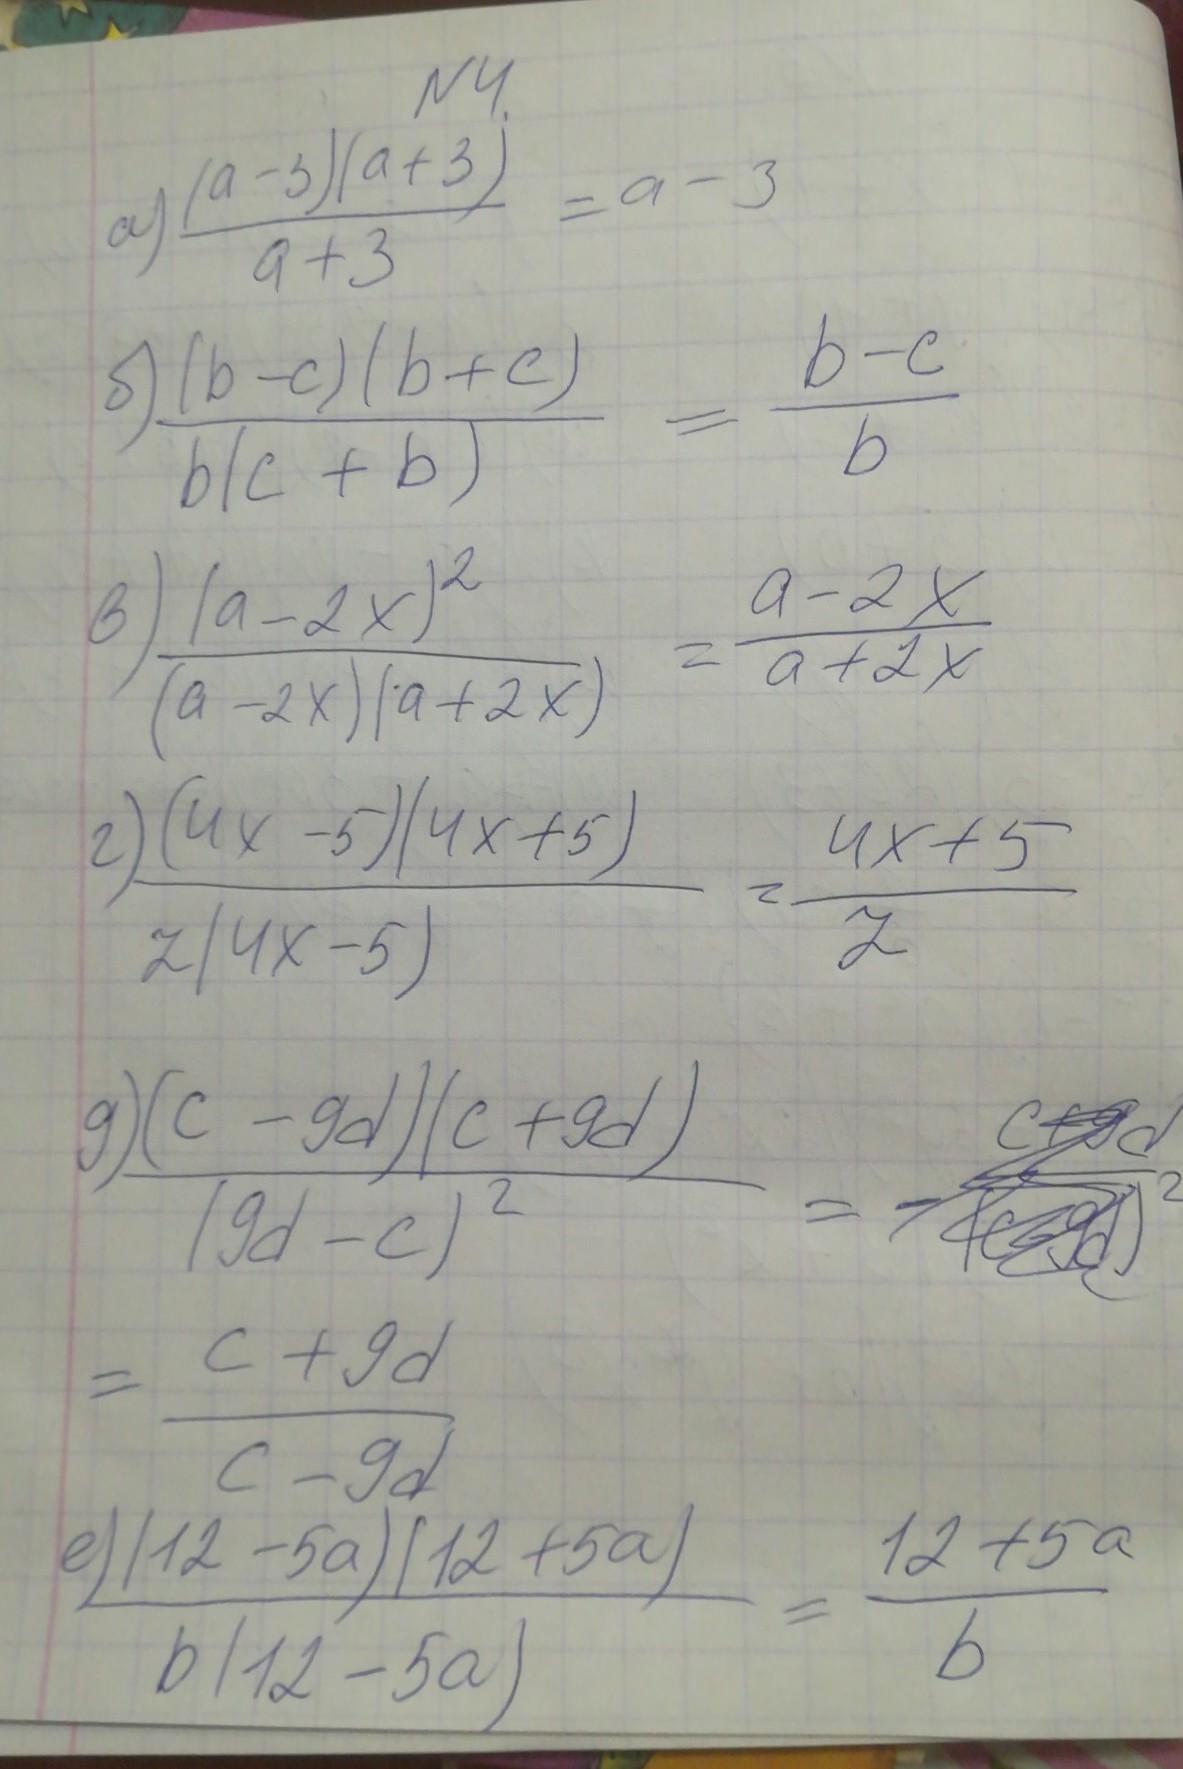 N4.
а) (a-3)(a+3)
a+3
= a-3
б) (b-c)(b+c)
b(c+b)
= b-c
b
в) (a-2x)²
(a-2x)(a+2x)
= a-2x
a+2x
г) (4x-5)(4x+5)
z(4x-5)
= 4x+5
z
д) (c-9d)(c+9d)
(9d-c)²
= -
= c+9d
c-9d
е) (12-5a)(12+5a)
b(12-5a)
= 12+5a
b